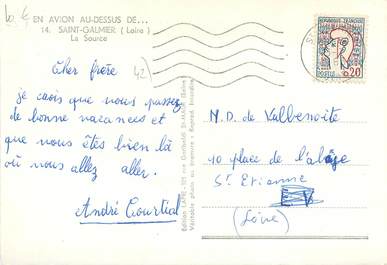 EN AVION AU-DESSUS DE...
14. SAINT-GALMIER (Loire)
La Source
Cher frère
42
je crois que vous passez
de bonne vacances et
que vous êtes bien là
où vous allez aller.
André Courtial
Edition LAPIE
Véritable photo au bromure - Reprod. interdite
REPUBLIQUE FRANÇAISE
POSTES
0,20
M.D. de Valbenoite
40 place de l'abbaye
St Etienne
(Loire)